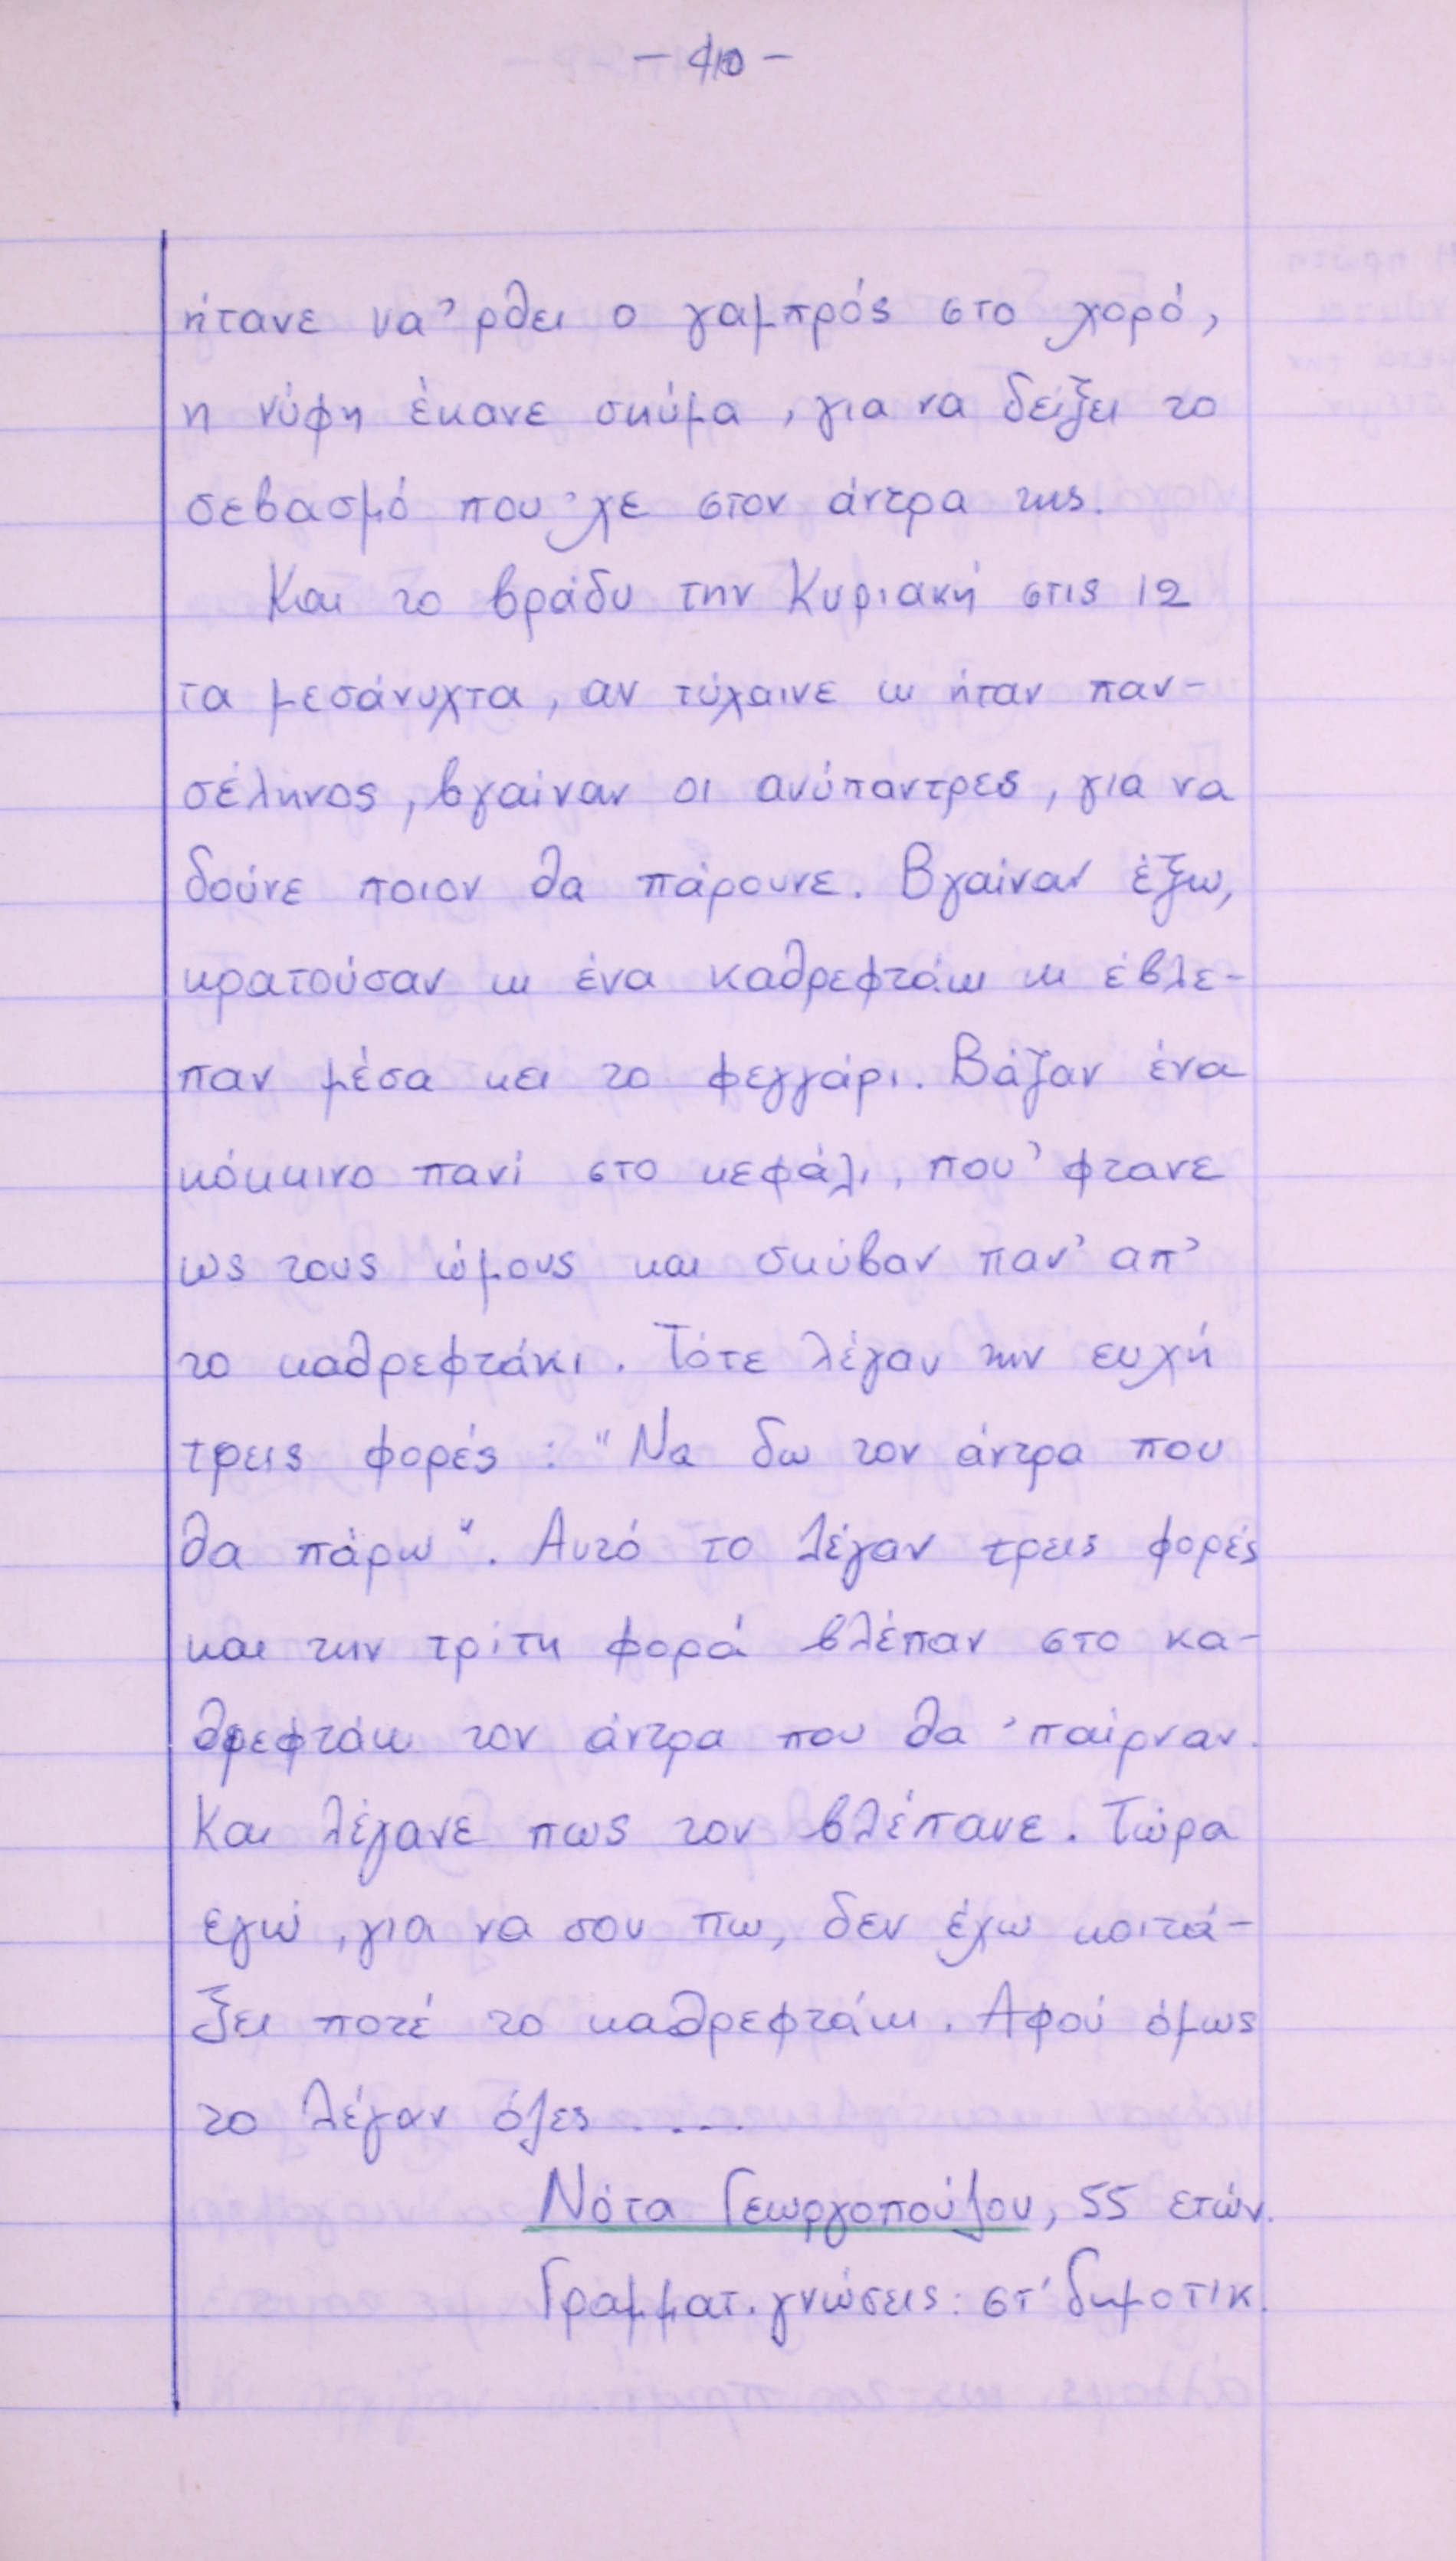 ήτανε να 'ρθει ο γαμπρός στο χορό,
η νύφη έκανε σκύμα, για να δείξει το
σεβασμό που 'χε στον άντρα της.
Και το βράδυ την Κυριακή στις 12
τα μεσάνυχτα, αν τύχαινε κι ήταν παν-
σέληνος, βγαίναν οι ανύπαντρες, για να
δούνε ποιον θα πάρουνε. Βγαίναν έξω,
κρατούσαν κι ένα καθρεφτάκι κι έβλε-
παν μέσα κει το φεγγάρι. Βάζαν ένα
κόκκινο πανί στο κεφάλι, που 'φτανε
ως τους ώμους και σκύβαν παν' απ'
το καθρεφτάκι. Τότε λέγαν την ευχή
τρεις φορές : "Να δω τον άντρα που
θα πάρω". Αυτό το λέγαν τρεις φορές
και την τρίτη φορά βλέπαν στο κα-
θρεφτάκι τον άντρα που θα 'παίρναν.
Και λέγανε πως τον βλέπανε. Τώρα
εγώ, για να σου πω, δεν έχω κοιτά-
ξει ποτέ το καθρεφτάκι. Αφού όμως
το λέγαν όλες .....
Νότα Γεωργοπούλου, 55 ετών.
Γραμματ. γνώσεις: στ' δημοτικ.